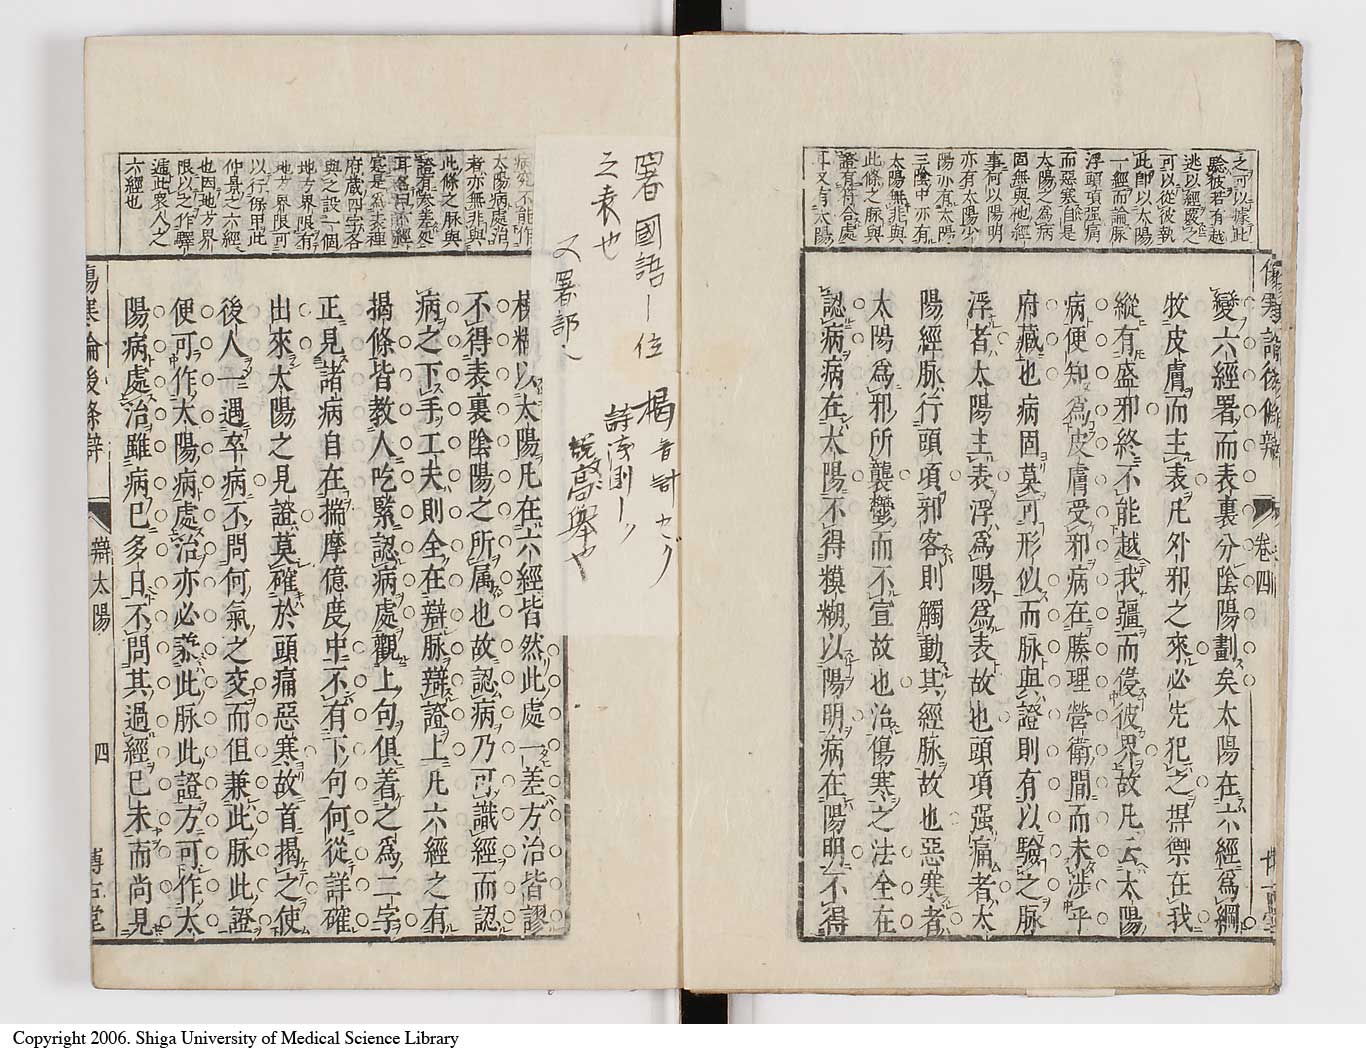 之可以據此
驗彼若有越
迯以經慶之
可以從彼執
此卽以太陽
一經而論脉
浮頭項强痛
而惡寒自是
太陽之爲病
固無與他經
事何以陽明
亦有太陽少
陽亦有太陽
三陰中亦有
太陽無非與
此條之脉與
證有符合處
耳又有太陽
傷寒論後條辯
卷四
變六經署而表裏分陰陽劃矣太陽在六經爲綱
牧皮膚而主表凡外邪之來必先犯之捍禦在我
縱有盛邪終不能越我疆而侵彼界故凡云太陽
病便知爲皮膚受邪病在腠理營衞間而未涉乎
府藏也病固莫可形似而脉與證則有以驗之脉
浮者太陽主表浮爲陽爲表故也頭項强痛者太
陽經脉行頭項邪客則觸動其經脉故也惡寒者
太陽爲邪所襲鬱而不宣故也治傷寒之法全在
認病病在太陽不得糢糊以陽明病在陽明不得
署國語一位
之表也
又署部〳
揭音計セグ
詩淺則一ツ
說高擧也
太陽病處治
者亦無非與
此條之脉與
證有參差處
府藏四字各
與之設一個
地方界限有
地方界限可
以行保甲此
仲景之六經
也因地方界
限以之作驛
遞此衆人之
六經也
糢糊以太陽凡在六經皆然此處一差方治皆謬
不得表裏陰陽之所属也故認病乃可識經而認
病之下手工夫則全在辯脉辯證上凡六經之有
揭條皆教人吃緊認病處觀上句俱着之爲二字
正見諸病自在揣摩億度中不有下句何從詳確
出來太陽之見證莫確於頭痛惡寒故首揭之使
後人一遇卒病不問何氣之交而但兼此脉此證
便可作太陽病處治亦必兼此脉此證方可作太
陽病處治雖病已多日不問其過經已未而尚見
傷寒論後條辯
辯太陽
四
博古堂
Copyright 2006. Shiga University of Medical Science Library